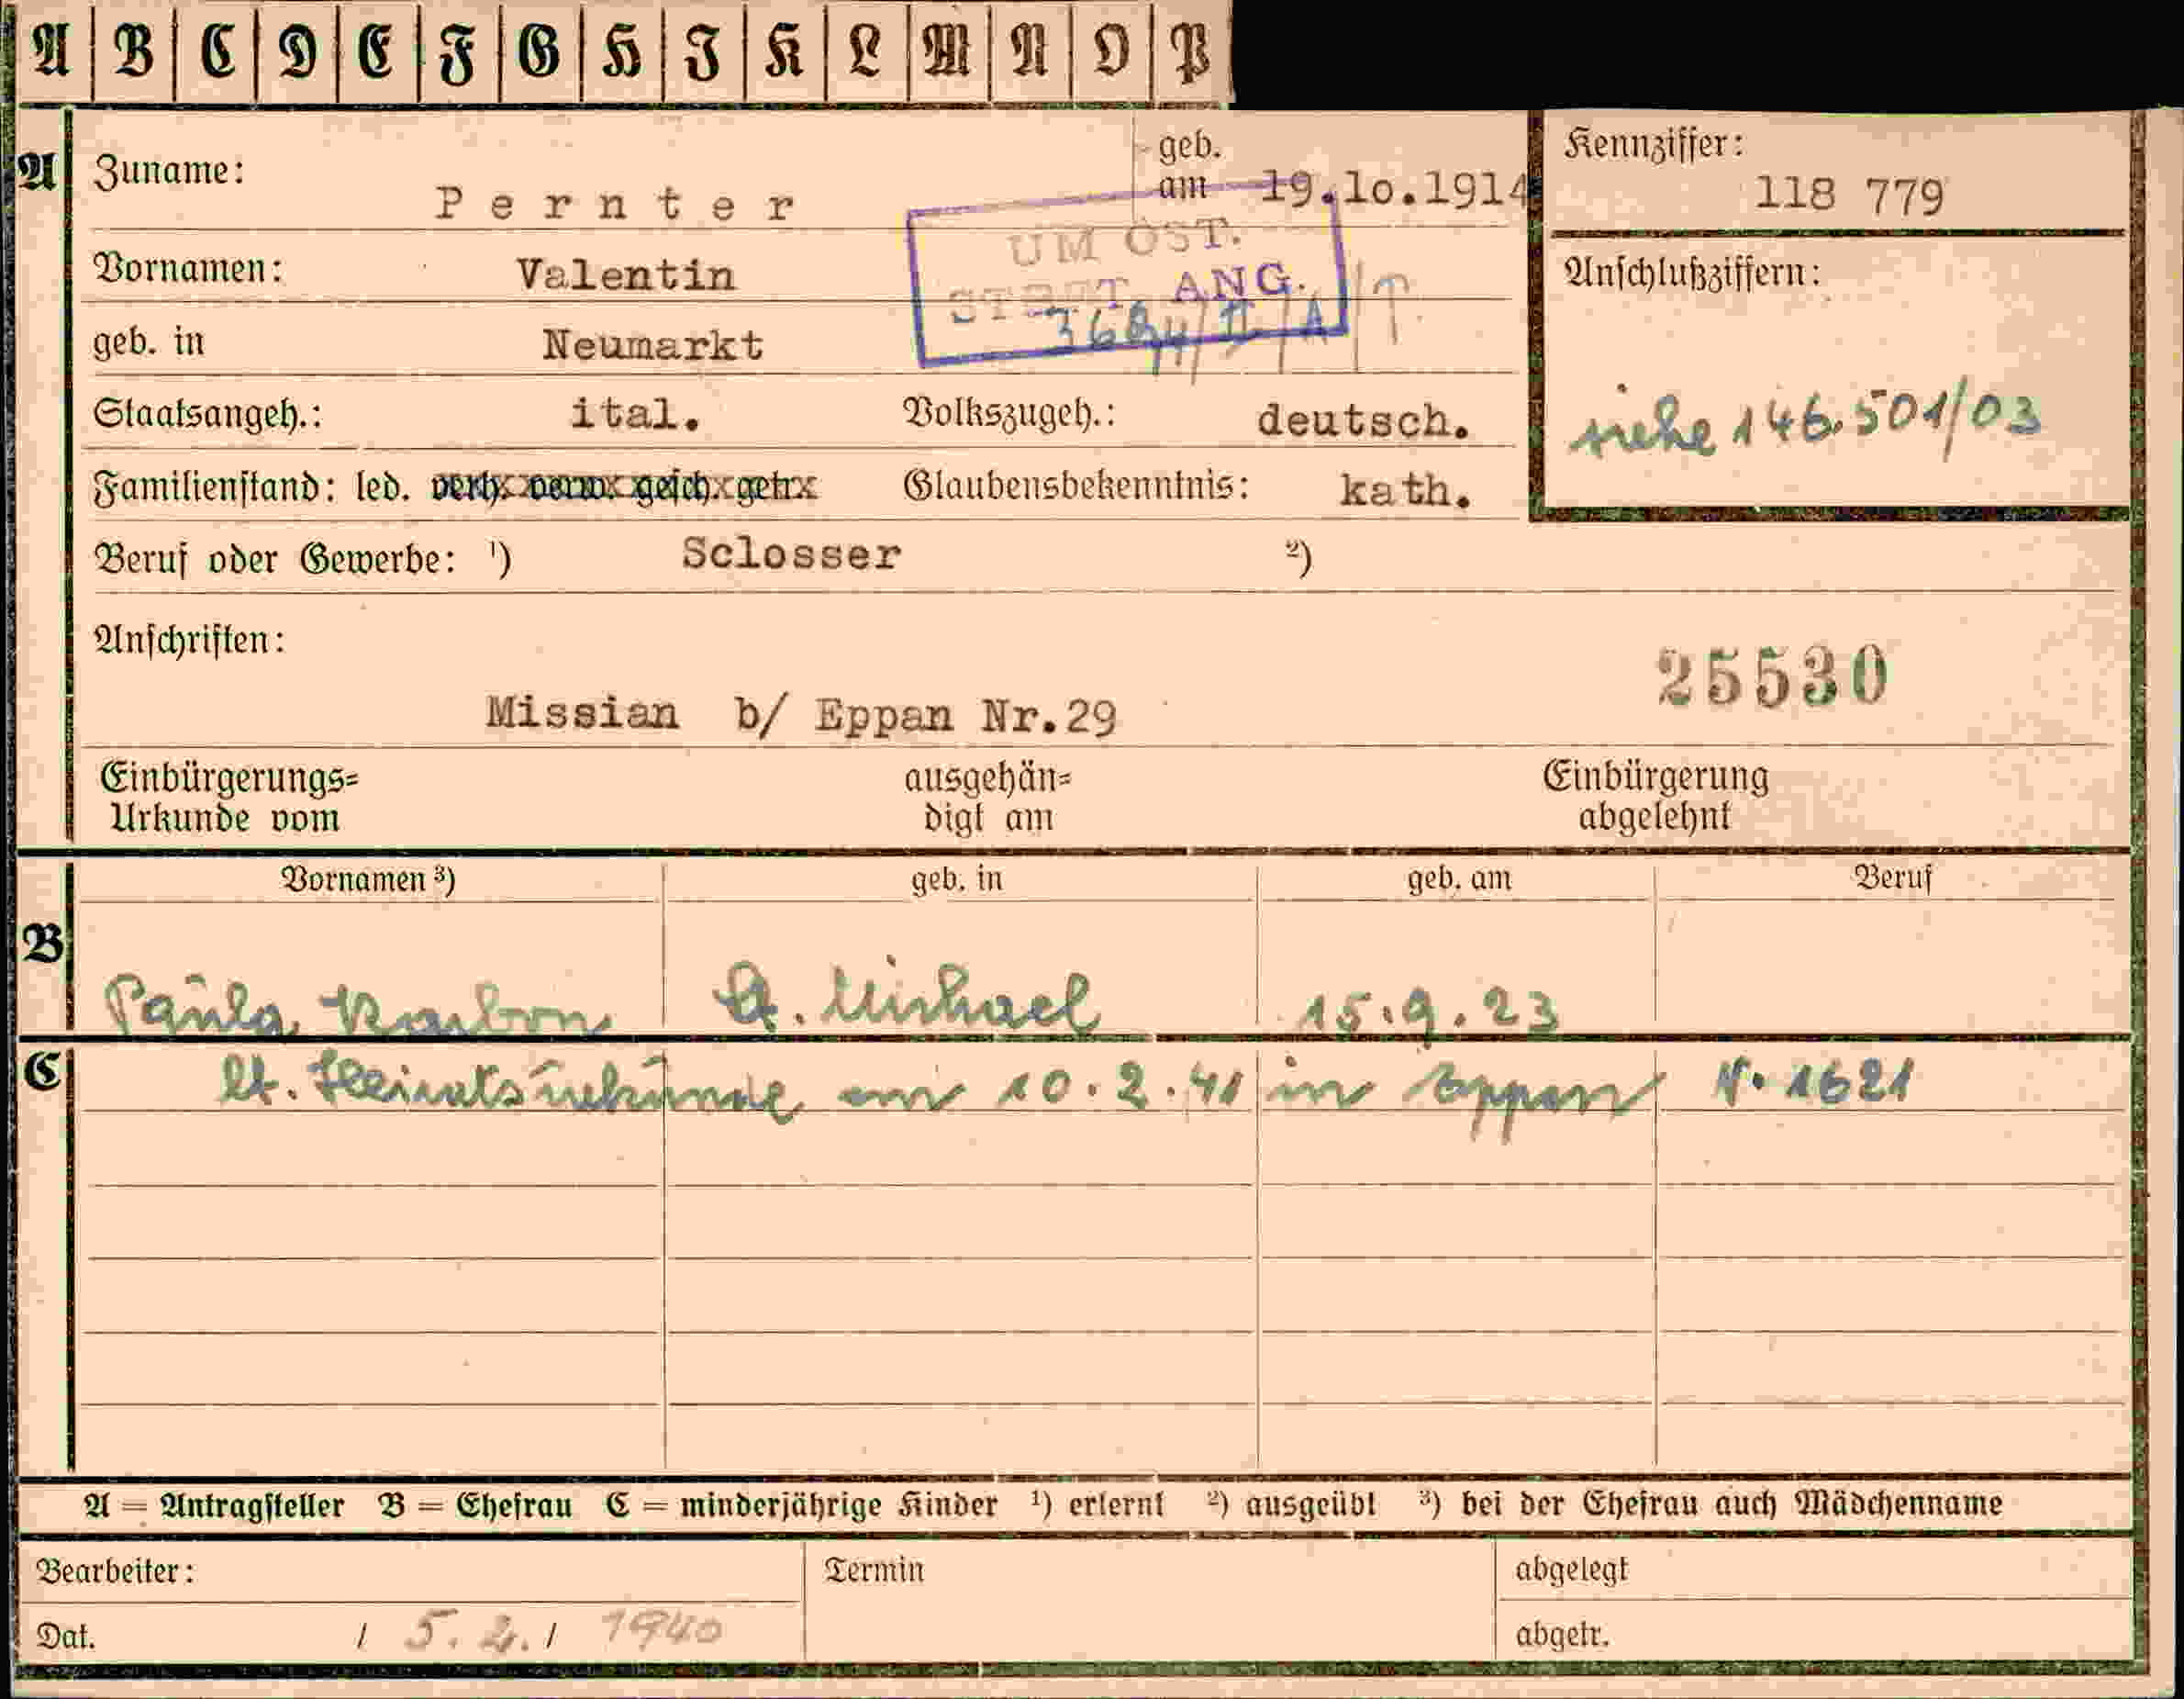 A B C D E F G H I K L M N O P
A
Zuname: Pernter
geb. am 19.lo.1914
Kennziffer: 118 779
UM ÖST.
ANG.
Vornamen: Valentin
Anschlußziffern:
geb. in Neumarkt
Staatsangeh.: ital. Volkszugeh.: deutsch.
siehe 146.501/03
Familienstand: led. verh. verw. gesch. getr. Glaubensbekenntnis: kath.
Beruf oder Gewerbe: ¹) Sclosser ²)
Anschriften:
25530
Missian b/ Eppan Nr.29
Einbürgerungs= Urkunde vom
ausgehän= digt am
Einbürgerung abgelehnt
Vornamen ³) geb. in geb. am Beruf
B
Paula St. Michael 15.9.23
C
lt. Heiratsurkunde am 10.2.41 in Eppan N. 1621
A = Antragsteller B = Ehefrau C = minderjährige Kinder ¹) erlernt ²) ausgeübt ³) bei der Ehefrau auch Mädchenname
Bearbeiter: Termin abgelegt
Dat. / 5.2./ 1940 abgetr.